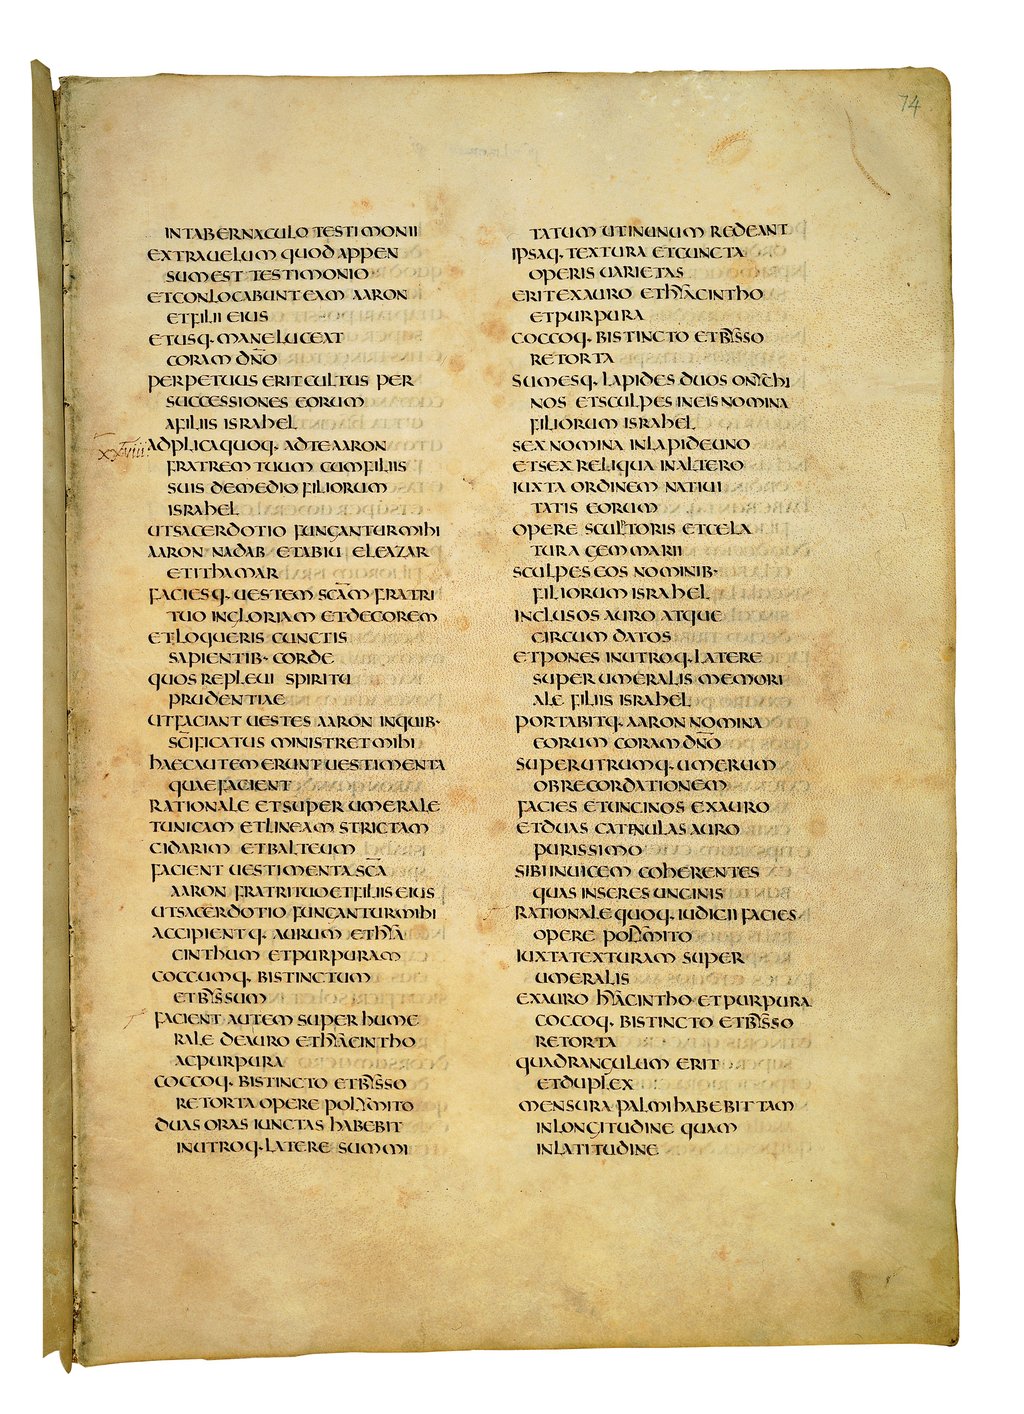 74
IN TABERNACULO TESTIMONII
EXTRA UELUM QUOD APPEN
SUM EST TESTIMONIO
ET CONLOCABUNT EAM AARON
ET FILII EIUS
ET USQ· MANE LUCEAT
CORAM DN̅O
PERPETUUS ERIT CULTUS PER
SUCCESSIONES EORUM
A FILIIS ISRAHEL
xxviii ADPLICA QUOQ· AD TE AARON
FRATREM TUUM CUM FILIIS
SUIS DE MEDIO FILIORUM
ISRAHEL
UT SACERDOTIO FUNGANTUR MIHI
AARON NADAB ET ABIU ELEAZAR
ET ITHAMAR
FACIESQ· UESTEM SC̅A̅M FRATRI
TUO IN GLORIAM ET DECOREM
ET LOQUERIS CUNCTIS
SAPIENTIB· CORDE
QUOS REPLEUI SPIRITU
PRUDENTIAE
UT FACIANT UESTES AARON IN QUIB·
SC̅IFICATUS MINISTRET MIHI
HAEC AUTEM ERUNT UESTIMENTA
QUAE FACIENT
RATIONALE ET SUPERUMERALE
TUNICAM ET LINEAM STRICTAM
CIDARIM ET BALTEUM
FACIENT UESTIMENTA SC̅A
AARON FRATRI TUO ET FILIIS EIUS
UT SACERDOTIO FUNGANTUR MIHI
ACCIPIENTQ· AURUM ET HYA
CINTHUM ET PURPURAM
COCCUMQ· BIS TINCTUM
ET BYSSUM
FACIENT AUTEM SUPERHUME
RALE DE AURO ET HYACINTHO
AC PURPURA
COCCOQ· BIS TINCTO ET BYSSO
RETORTA OPERE POLYMITO
DUAS ORAS IUNCTAS HABEBIT
IN UTROQ· LATERE SUMMI
TATUM UT IN UNUM REDEANT
IPSAQ· TEXTURA ET CUNCTA
OPERIS UARIETAS
ERIT EX AURO ET HYACINTHO
ET PURPURA
COCCOQ· BIS TINCTO ET BYSSO
RETORTA
SUMESQ· LAPIDES DUOS ONYCHI
NOS ET SCULPES IN EIS NOMINA
FILIORUM ISRAHEL
SEX NOMINA IN LAPIDE UNO
ET SEX RELIQUA IN ALTERO
IUXTA ORDINEM NATIUI
TATIS EORUM
OPERE SCULPTORIS ET CELA
TURA GEMMARII
SCULPES EOS NOMINIB·
FILIORUM ISRAHEL
INCLUSOS AURO ATQUE
CIRCUMDATOS
ET PONES IN UTROQ· LATERE
SUPERUMERALIS MEMORI
ALE FILIIS ISRAHEL
PORTABITQ· AARON NOMINA
EORUM CORAM DN̅O
SUPER UTRUMQ· UMERUM
OB RECORDATIONEM
FACIES ET UNCINOS EX AURO
ET DUAS CATENULAS AURO
PURISSIMO
SIBI INUICEM COHERENTES
QUAS INSERES UNCINIS
RATIONALE QUOQ· IUDICII FACIES
OPERE POLYMITO
IUXTA TEXTURAM SUPER
UMERALIS
EX AURO HYACINTHO ET PURPURA
COCCOQ· BIS TINCTO ET BYSSO
RETORTA
QUADRANGULUM ERIT
ET DUPLEX
MENSURA PALMI HABEBIT TAM
IN LONGITUDINE QUAM
IN LATITUDINE